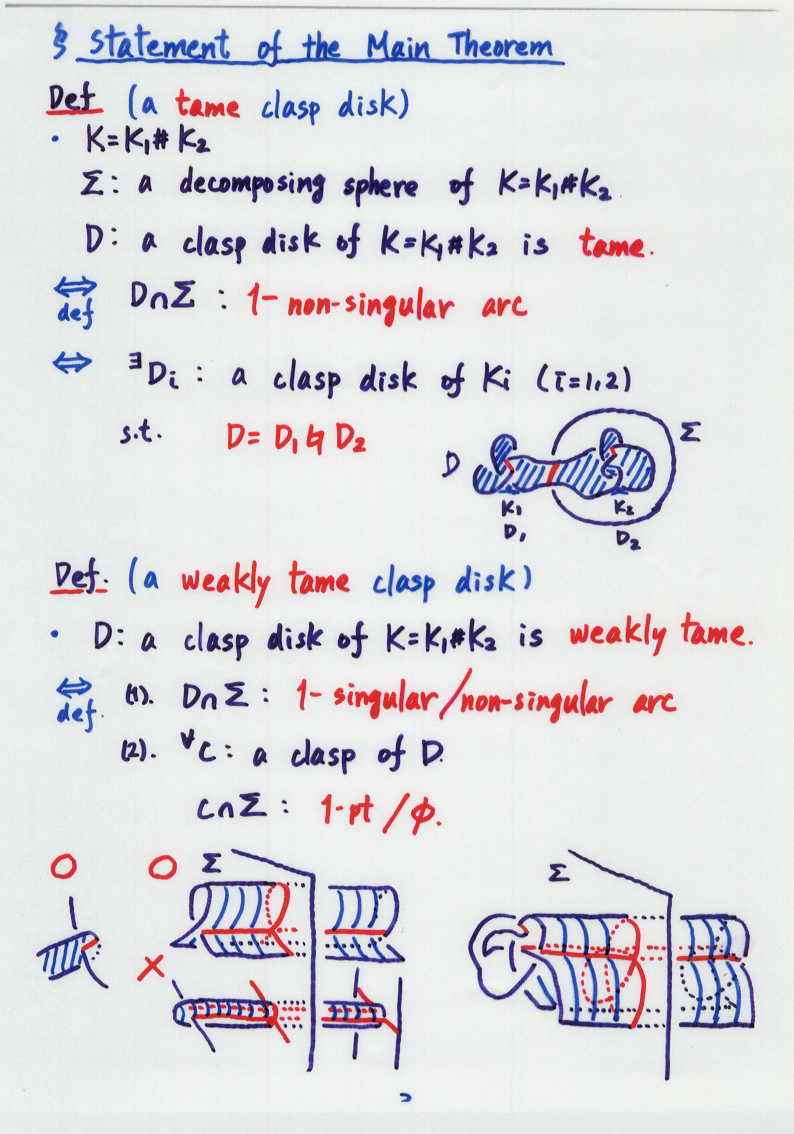 § Statement of the Main Theorem
Def (a tame clasp disk)
・ K=K₁#K₂
Σ: a decomposing sphere of K=K₁#K₂.
D: a clasp disk of K=K₁#K₂ is tame.
⇔ def D∩Σ : 1-non-singular arc
⇔ ∃Dᵢ : a clasp disk of Kᵢ (i=1,2)
s.t. D= D₁ ♮ D₂
D Σ
K₁ K₂
D₁ D₂
Def. (a weakly tame clasp disk)
・ D: a clasp disk of K=K₁#K₂ is weakly tame.
⇔ def. (1). D∩Σ : 1- singular/non-singular arc
(2). ∀C : a clasp of D.
C∩Σ : 1-pt / φ.
○ ○ Σ Σ
×